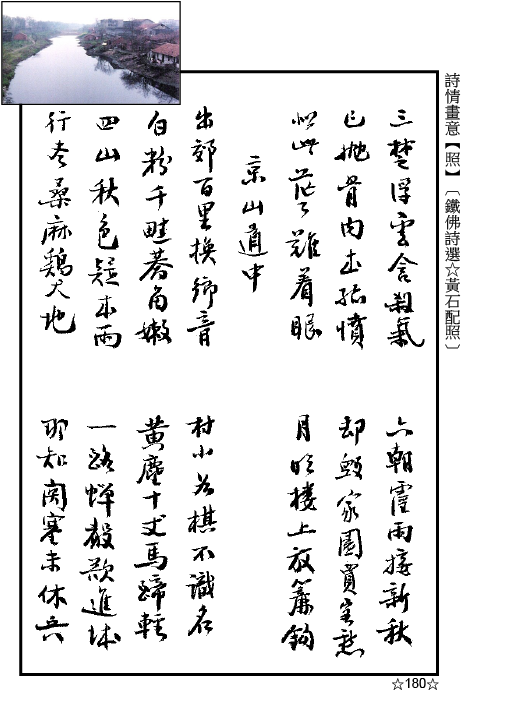 詩情畫意【照】〔鐵佛詩選☆黃石配照〕
三楚浮雲含殺氣
六朝霪雨接新秋
已拋骨肉去孤憤
却毀家園買愁
似此茫々難着眼
月明樓上放簾鉤
京山道中
出郊百里換鄉音
村小若棋不識名
白粉千畦蕎角嫩
黃塵十丈馬蹄輕
四山秋色疑來雨
一路蟬聲欲進城
行尽桑麻鷄犬地
那知關塞未休兵
☆180☆